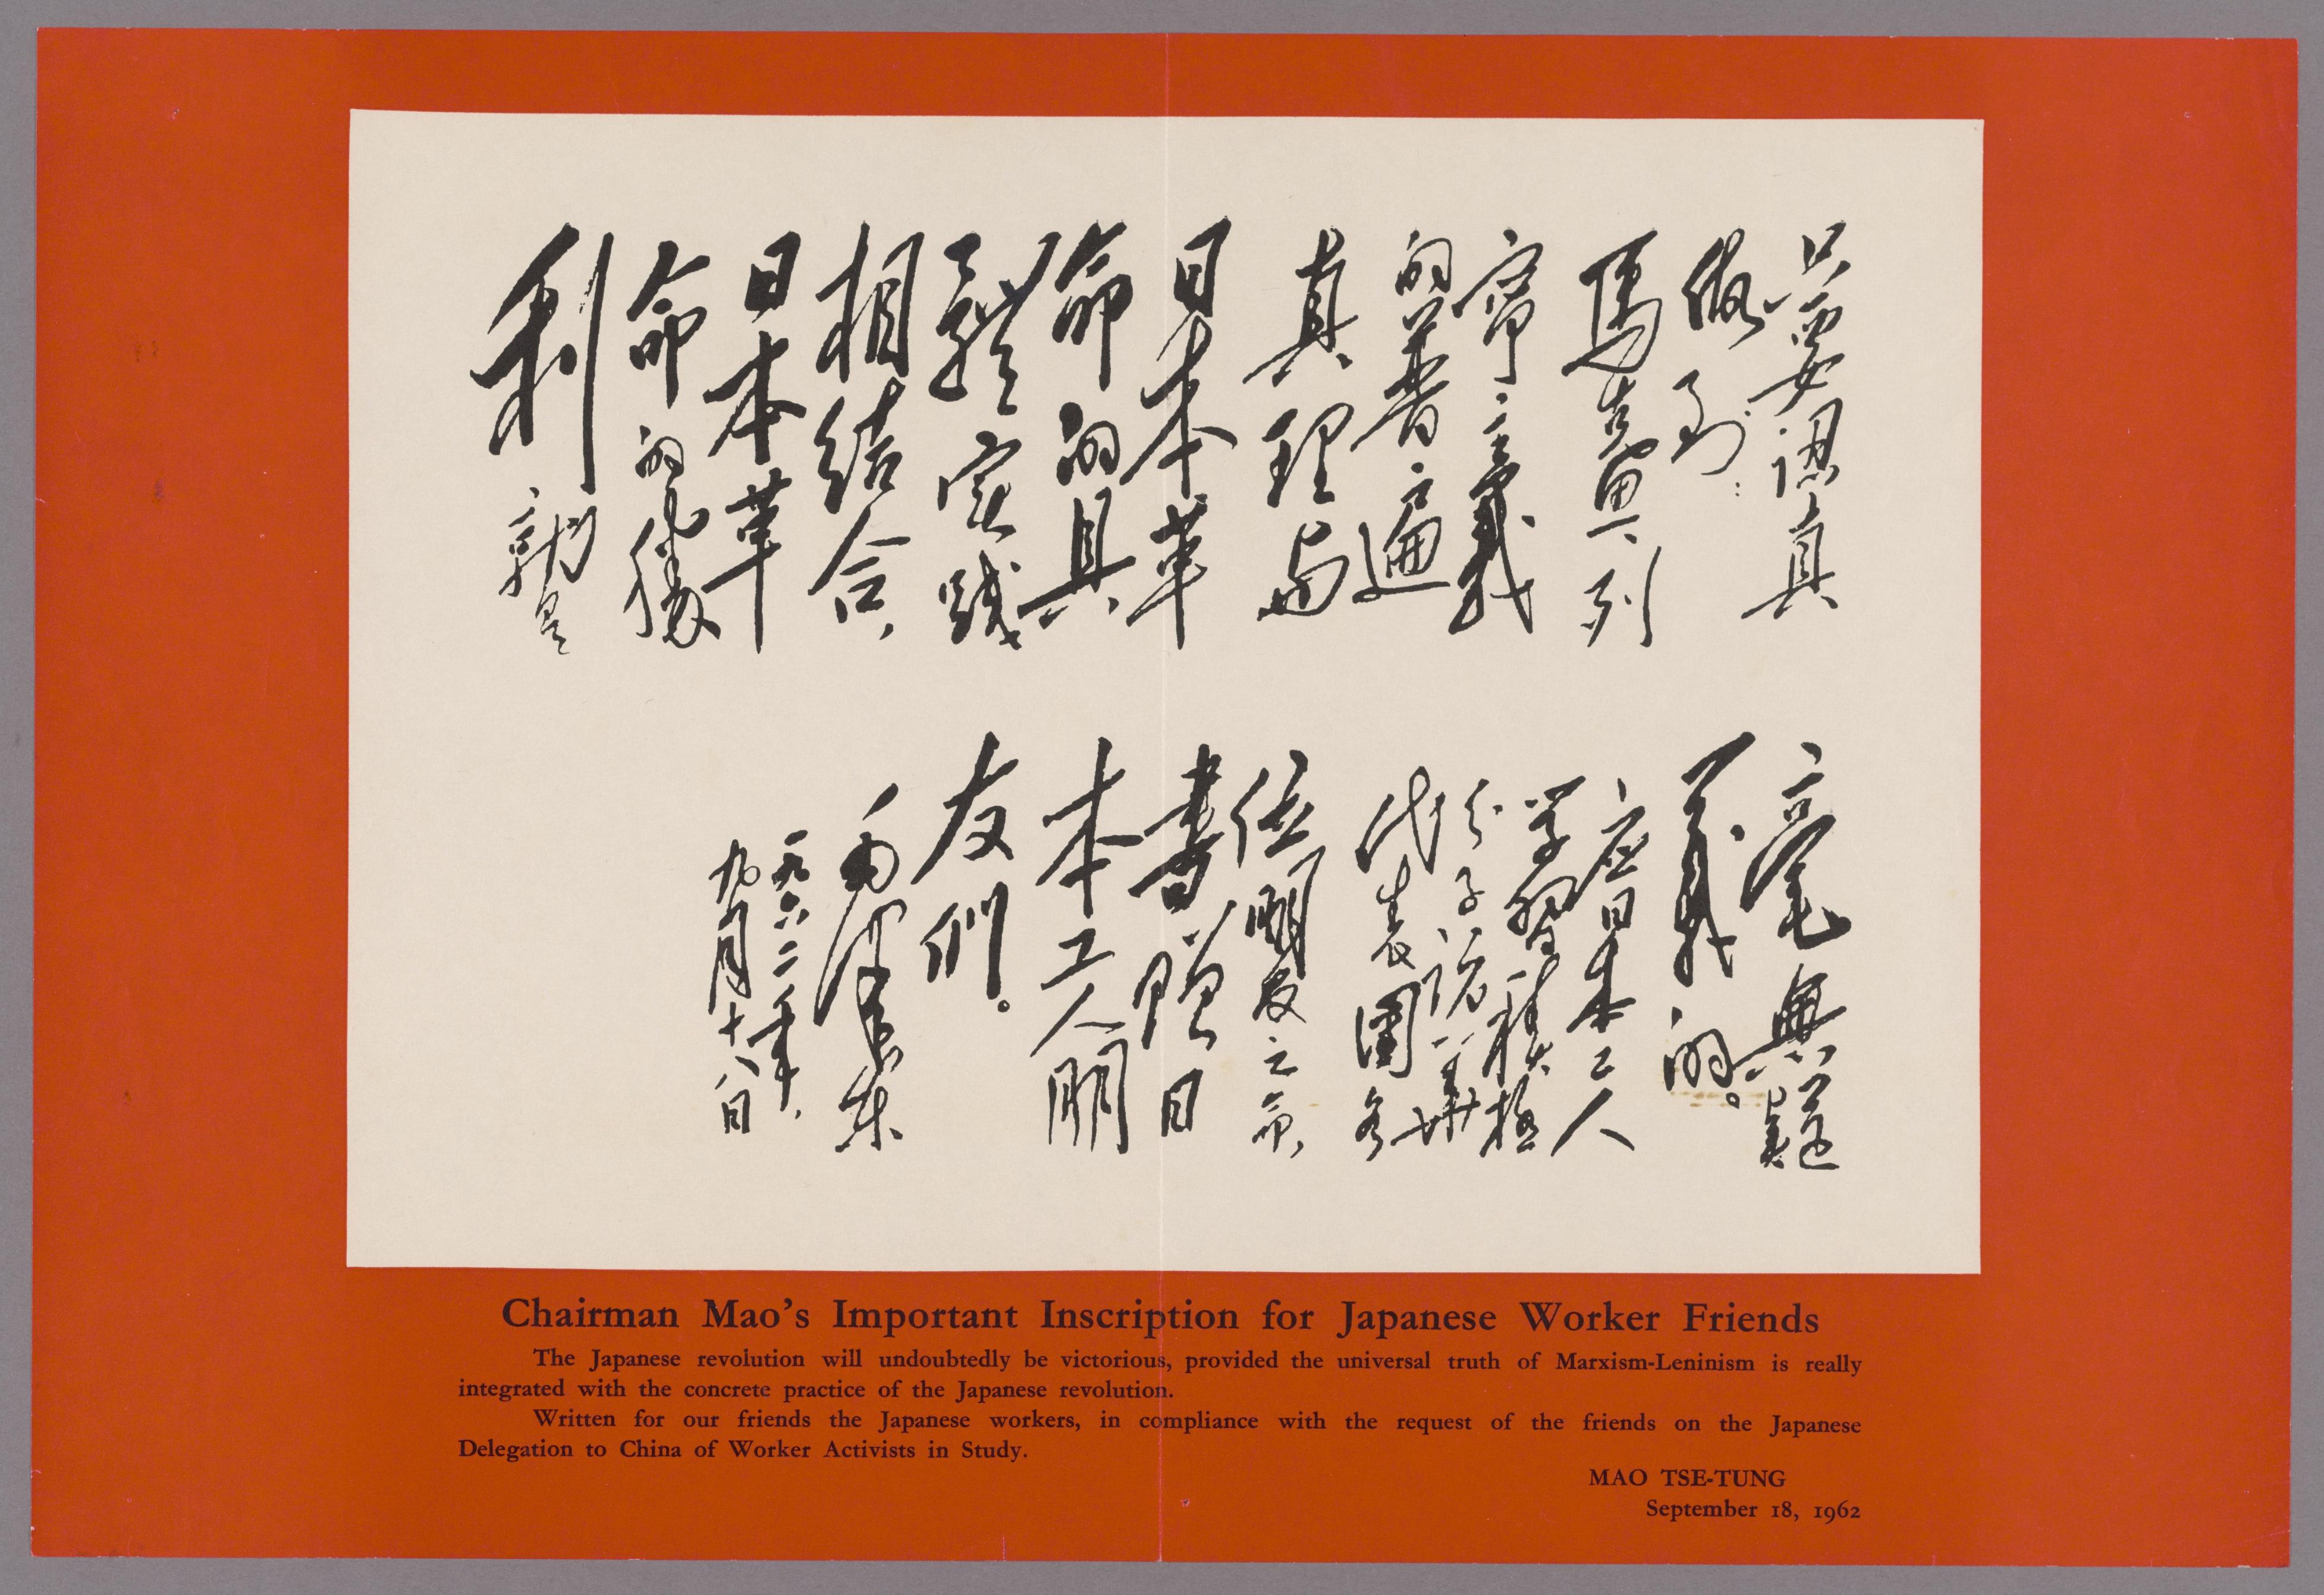 只要認真
做到：
馬克思、列
寧主義
的普遍
真理与
日本革
命的具
體实践
相結合，
日本革
命的勝
利就是
毫無疑
義的。
应日本工人
学習積極
分子訪華
代表團各
位朋友之命，
書贈日
本工人朋
友們。
毛澤東
一九六二年，
九月十八日
Chairman Mao's Important Inscription for Japanese Worker Friends
The Japanese revolution will undoubtedly be victorious, provided the universal truth of Marxism-Leninism is really
integrated with the concrete practice of the Japanese revolution.
Written for our friends the Japanese workers, in compliance with the request of the friends on the Japanese
Delegation to China of Worker Activists in Study.
MAO TSE-TUNG
September 18, 1962